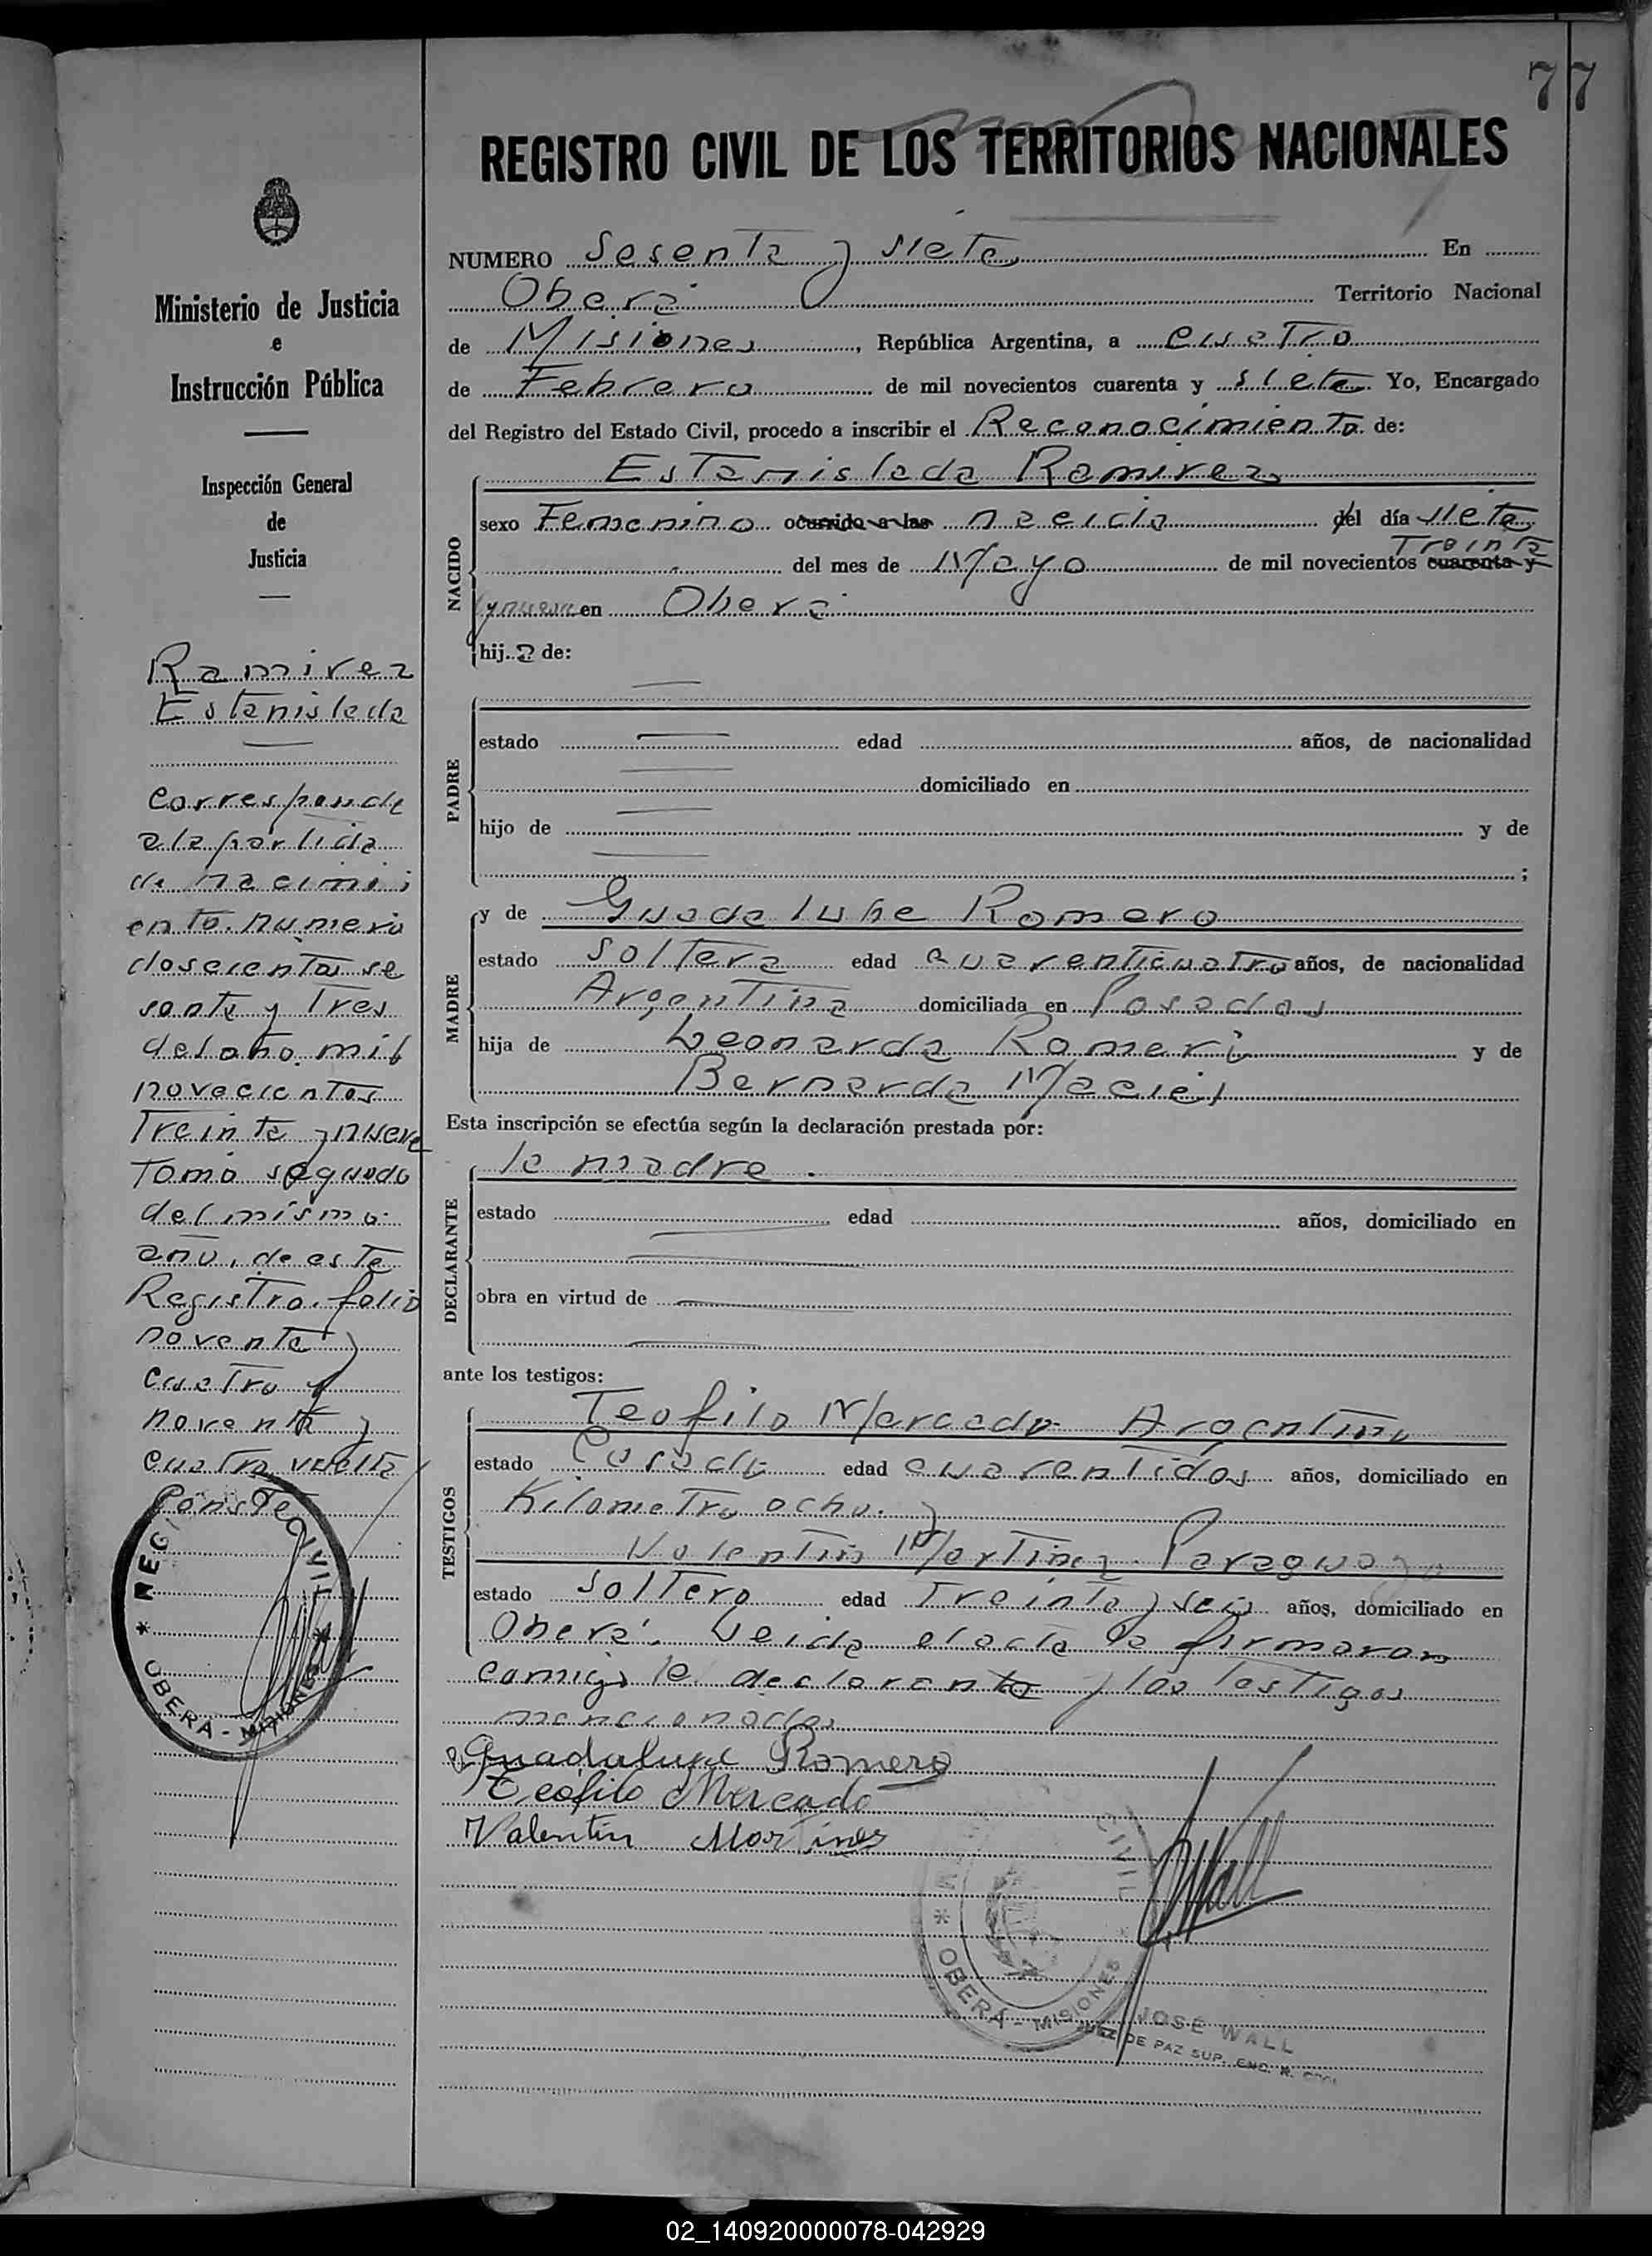 77
REGISTRO CIVIL DE LOS TERRITORIOS NACIONALES
Ministerio de Justicia
e
Instrucción Pública
Inspección General
de
Justicia
Ramirez
Estanislada
corresponde
a la partida
de nacimi
ento. numero
doscientos se
senta y Tres
del año mil
novecientos
Treinta y nueve
Tomo segundo
del mismo
año, de este
Registro. folio
noventa y
cuatro y
noventa y
cuatro vuelta
Conste
REGI CIVIL
* OBERÁ - MISIONES *
NUMERO Sesenta y siete En
Oberá Territorio Nacional
de Misiones, República Argentina, a cuatro
de Febrero de mil novecientos cuarenta y siete Yo, Encargado
del Registro del Estado Civil, procedo a inscribir el Reconocimiento de:
NACIDO
Estanislada Ramirez
sexo Femenino ocurrido a las nacida del día siete
Treinta
del mes de Mayo de mil novecientos cuarenta y
y nueve en Oberá
hija de:
PADRE
estado edad años, de nacionalidad
domiciliado en
hijo de y de
;
MADRE
y de Guadalupe Romero
estado soltera edad cuarenticuatro años, de nacionalidad
Argentina domiciliada en Posadas
hija de Leonarda Romero y de
Bernarda Maciel
Esta inscripción se efectúa según la declaración prestada por:
DECLARANTE
la madre.
estado edad años, domiciliado en
obra en virtud de
ante los testigos:
TESTIGOS
Teofilo Mercado Argentino
estado Casado edad cuarentidos años, domiciliado en
Kilometro ocho. y
Valentin Martinez. Paraguayo
estado soltero edad Treinta y seis años, domiciliado en
Oberá. Leida el acta la firmaron
comigo la declarante y los testigos
mencionados
Guadalupe Romero
Teófilo Mercado
Valentin Martines
JWall
CIVIL
* OBERÁ - MISIONES *
JOSÉ WALL
JUEZ DE PAZ SUP. ENC. R.
02_140920000078-042929